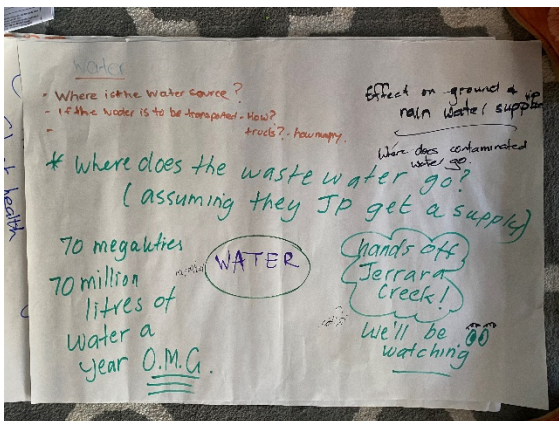 Water
- Where is the water source?
- If the water is to be transported - How?
trucks? - how many.
-
Effect on ground & JP
rain water supplies
Where does contaminated
water go.
* Where does the waste water go?
(assuming they JP get a supply)
70 megalities
70 million
litres of
water a
year O.M.G.
WATER
hands off
Jerrara
Creek!
We'll be
watching
health